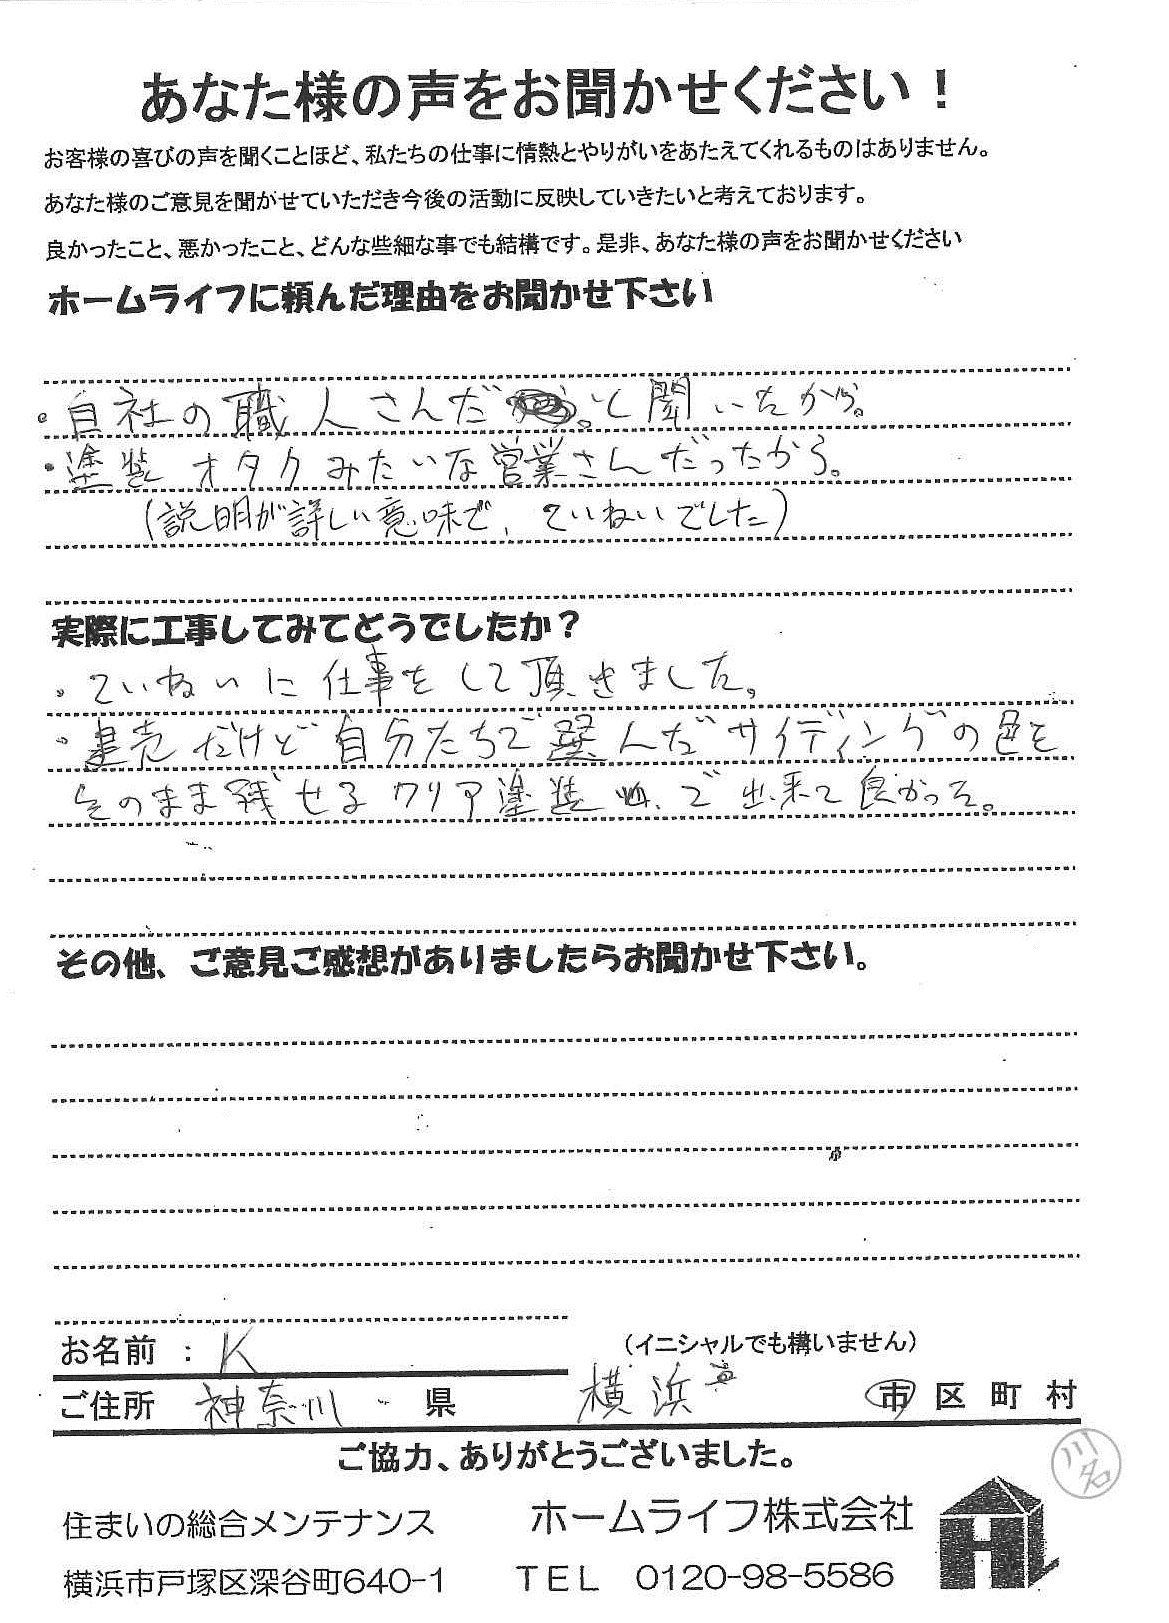 あなた様の声をお聞かせください！
お客様の喜びの声を聞くことほど、私たちの仕事に情熱とやりがいをあたえてくれるものはありません。
あなた様のご意見を聞かせていただき今後の活動に反映していきたいと考えております。
良かったこと、悪かったこと、どんな些細な事でも結構です。是非、あなた様の声をお聞かせください
ホームライフに頼んだ理由をお聞かせ下さい
。自社の職人さんだと聞いたから。
・塗装オタクみたいな営業さんだったから。
(説明が詳しい意味で、ていねいでした)
実際に工事してみてどうでしたか？
・ていねいに仕事をして頂きました。
・建売だけど自分たちで選んだサイディングの色を
そのまま残せるクリア塗装で出来て良かった。
その他、ご意見ご感想がありましたらお聞かせ下さい。
お名前 : K (イニシャルでも構いません)
ご住所 神奈川 県 横浜 市 区 町 村
ご協力、ありがとうございました。
川名
住まいの総合メンテナンス ホームライフ株式会社
横浜市戸塚区深谷町640-1 TEL 0120-98-5586
HL